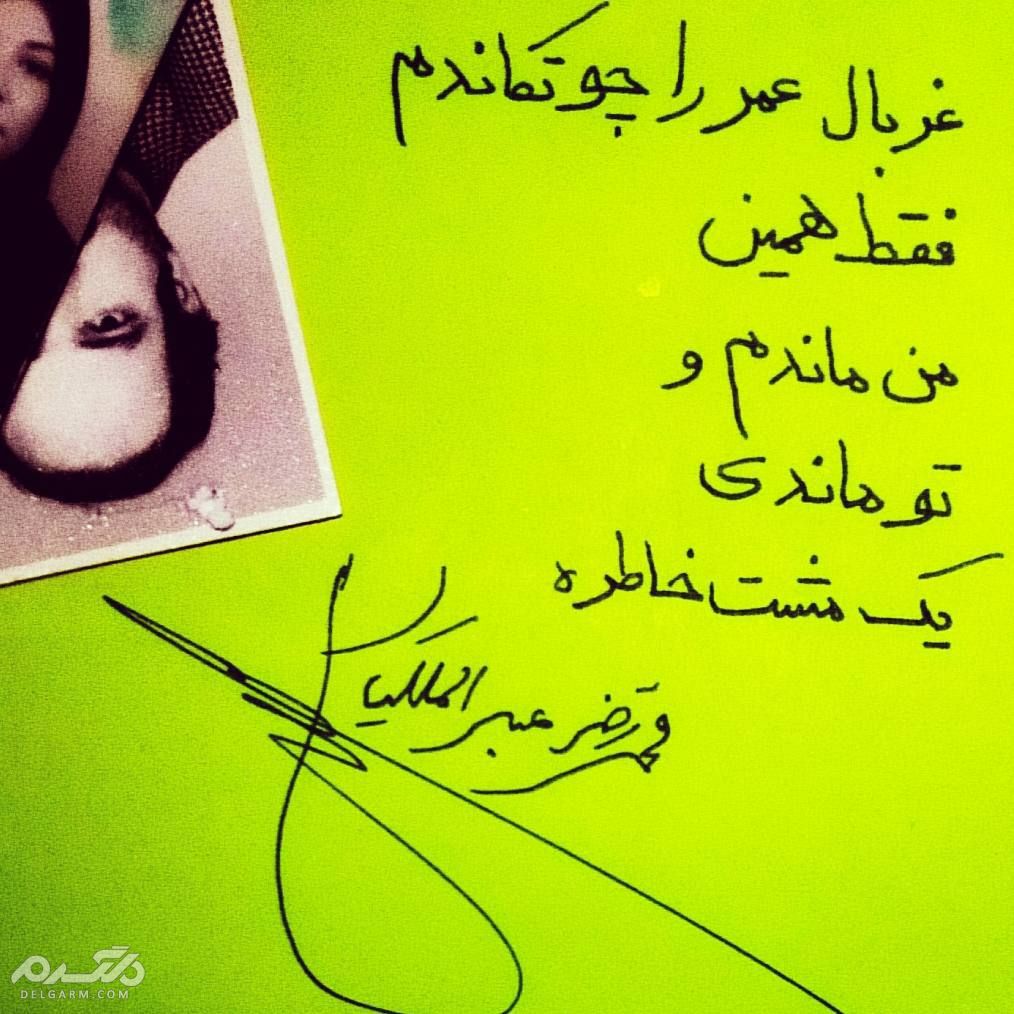 غربال عمر را چو تکاندم
فقط همین
من ماندم و
تو ماندی
یک مشت خاطره
عبدالملکیان
دلگرم
DELGARM.COM